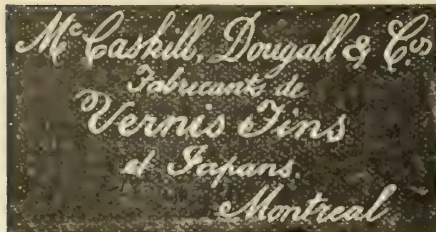 McCaskill, Dougall & Cie
Fabricants de
Vernis Fins
et Japans.
Montreal